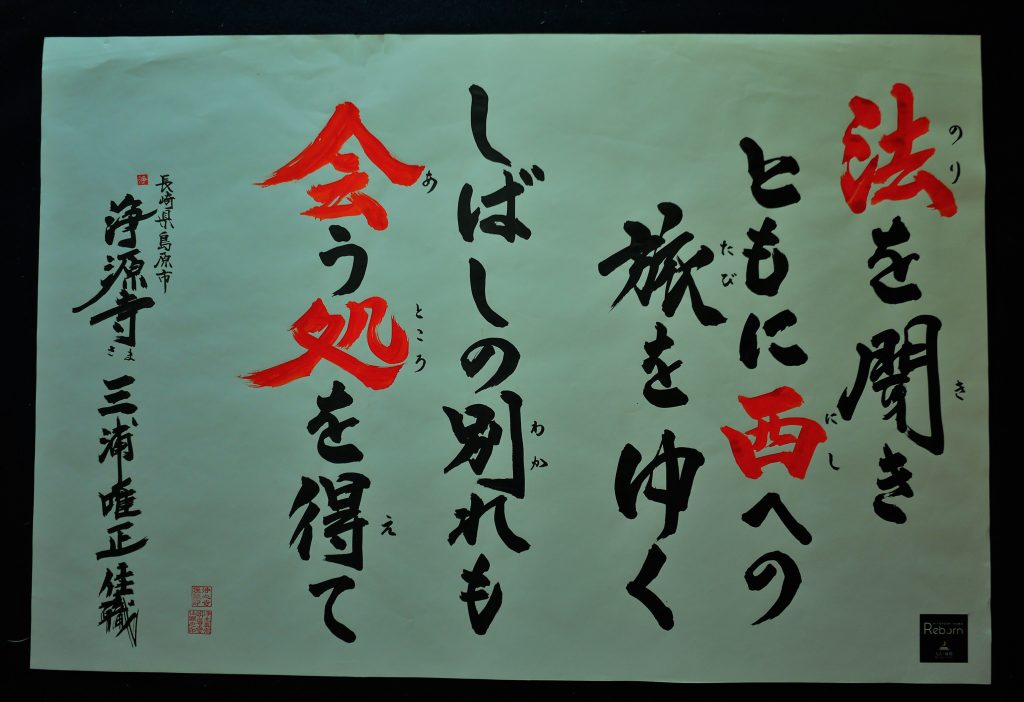 法を聞き
のり
き
ともに西への
にし
旅をゆく
たび
しばしの別れも
わか
会う処を得て
あ
ところ
え
長崎県島原市
浄源寺さま 三浦唯正 住職
浄
Reborn